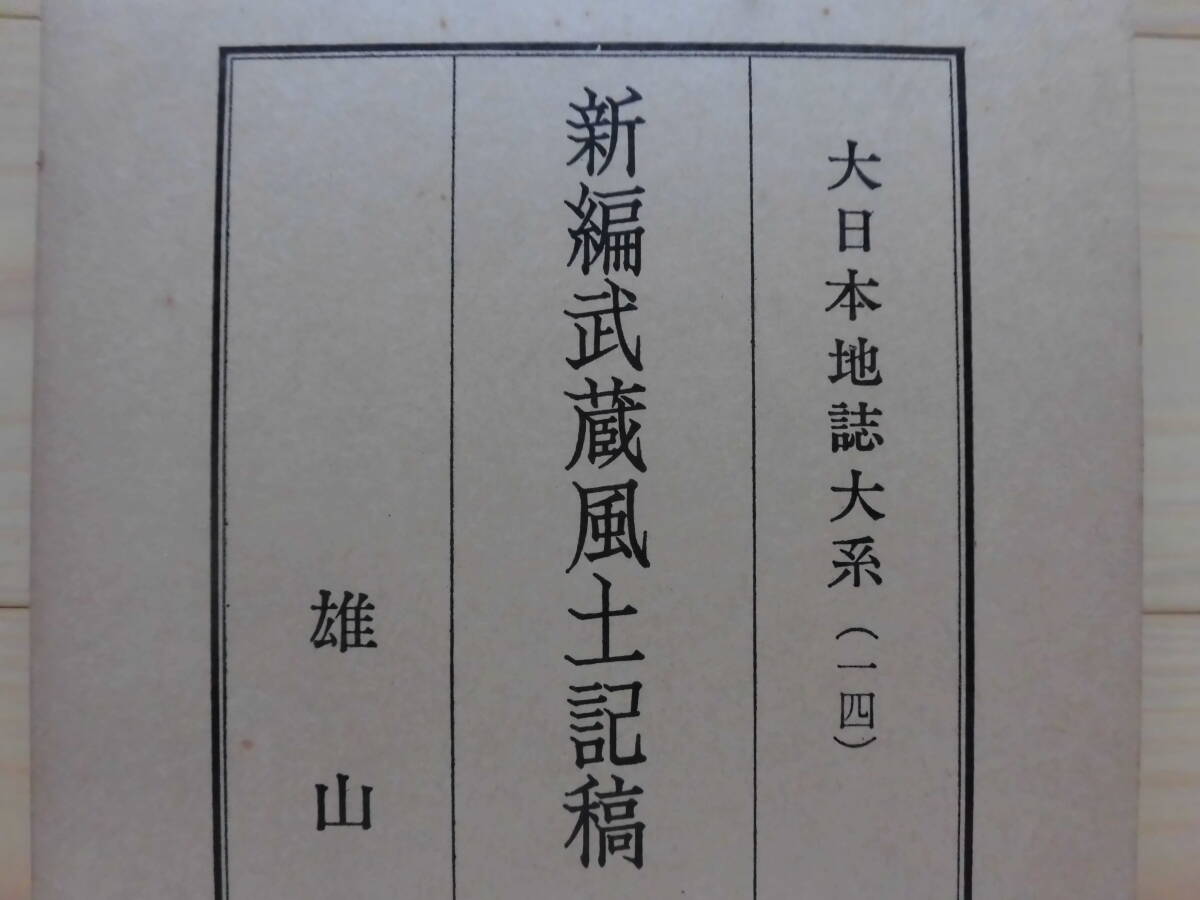 大日本地誌大系(一四)
新編武蔵風土記稿
雄山